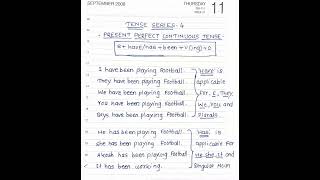 SEPTEMBER 2008
THURSDAY 11
TENSE SERIES: 4
PRESENT PERFECT CONTINUOUS TENSE:
S + have/has + been + V(ing) + O
I have been playing Football. Have is
They have been playing Football. applicable
We have been playing Football. for I, They,
You have been playing Football. We, You and
Boys have been playing Football. Plurals.
He has been playing Football. Has is
She has been playing Football. applicable For
Akash has been playing Football. He, She, It and
It has been working. Singular Noun